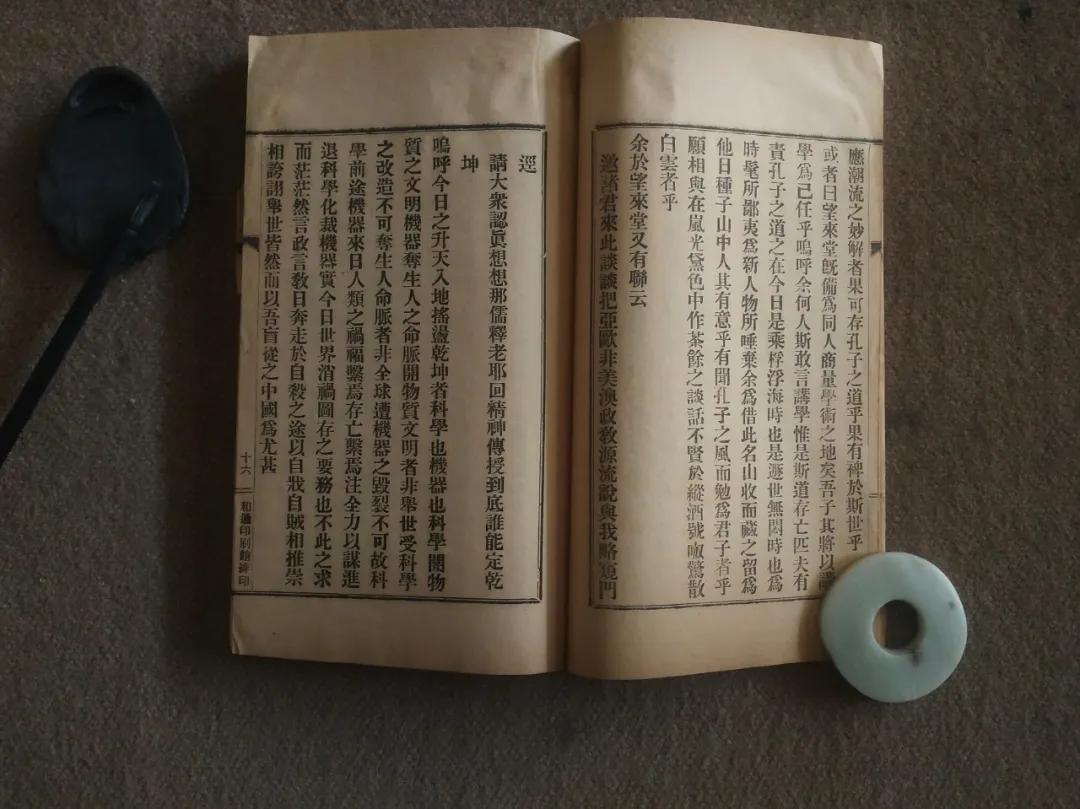 應潮流之妙解者果可存孔子之道乎果有裨於斯世乎
或者曰望來堂旣備爲同人商量學術之地矣吾子其將以講
學爲己任乎嗚呼余何人斯敢言講學惟是斯道存亡匹夫有
責孔子之道之在今日是乘桴浮海時也是遯世無悶時也爲
時髦所鄙夷爲新人物所唾棄余爲借此名山收而藏之留爲
他日種子山中人其有意乎有聞孔子之風而勉爲君子者乎
願相與在嵐光黛色中作茶餘之談話不賢於縱酒號呶驚散
白雲者乎
余於望來堂又有聯云
邀諸君來此談談把亞歐非美澳政敎源流說與我略窺門
逕
請大衆認眞想想那儒釋老耶回精神傳授到底誰能定乾
坤
嗚呼今日之升天入地搖盪乾坤者科學也機器也科學開物
質之文明機器奪生人之命脈開物質文明者非舉世受科學
之改造不可奪生人命脈者非全球遭機器之毀裂不可故科
學前途機器來日人類之禍福繫焉存亡繫焉注全力以謀進
退科學化裁機器實今日世界消禍圖存之要務也不此之求
而茫茫然言政言敎日奔走於自殺之途以自戕自賊相推崇
相誇詡舉世皆然而以吾盲從之中國爲尤甚
十六
和通印刷館排印